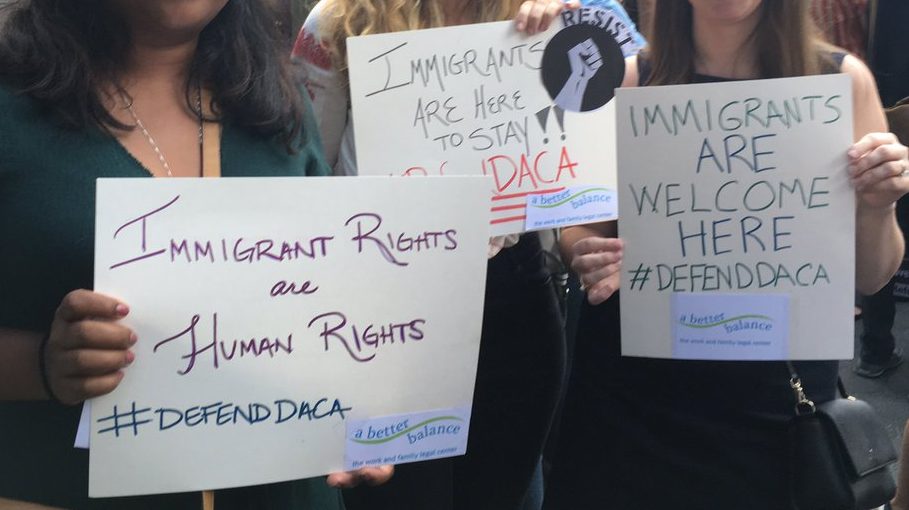 IMMIGRANT RIGHTS
are
HUMAN RIGHTS
#DEFENDDACA
a better
balance
the work and family legal center
IMMIGRANTS
ARE HERE
TO STAY!!
DACA
RESIST
a better
balance
the work and family legal center
IMMIGRANTS
ARE
WELCOME
HERE
#DEFENDDACA
a better
balance
the work and family legal center